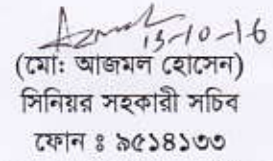 13-10-16
(মো: আজমল হোসেন)
সিনিয়র সহকারী সচিব
ফোন ঃ ৯৫১৪১৩৩